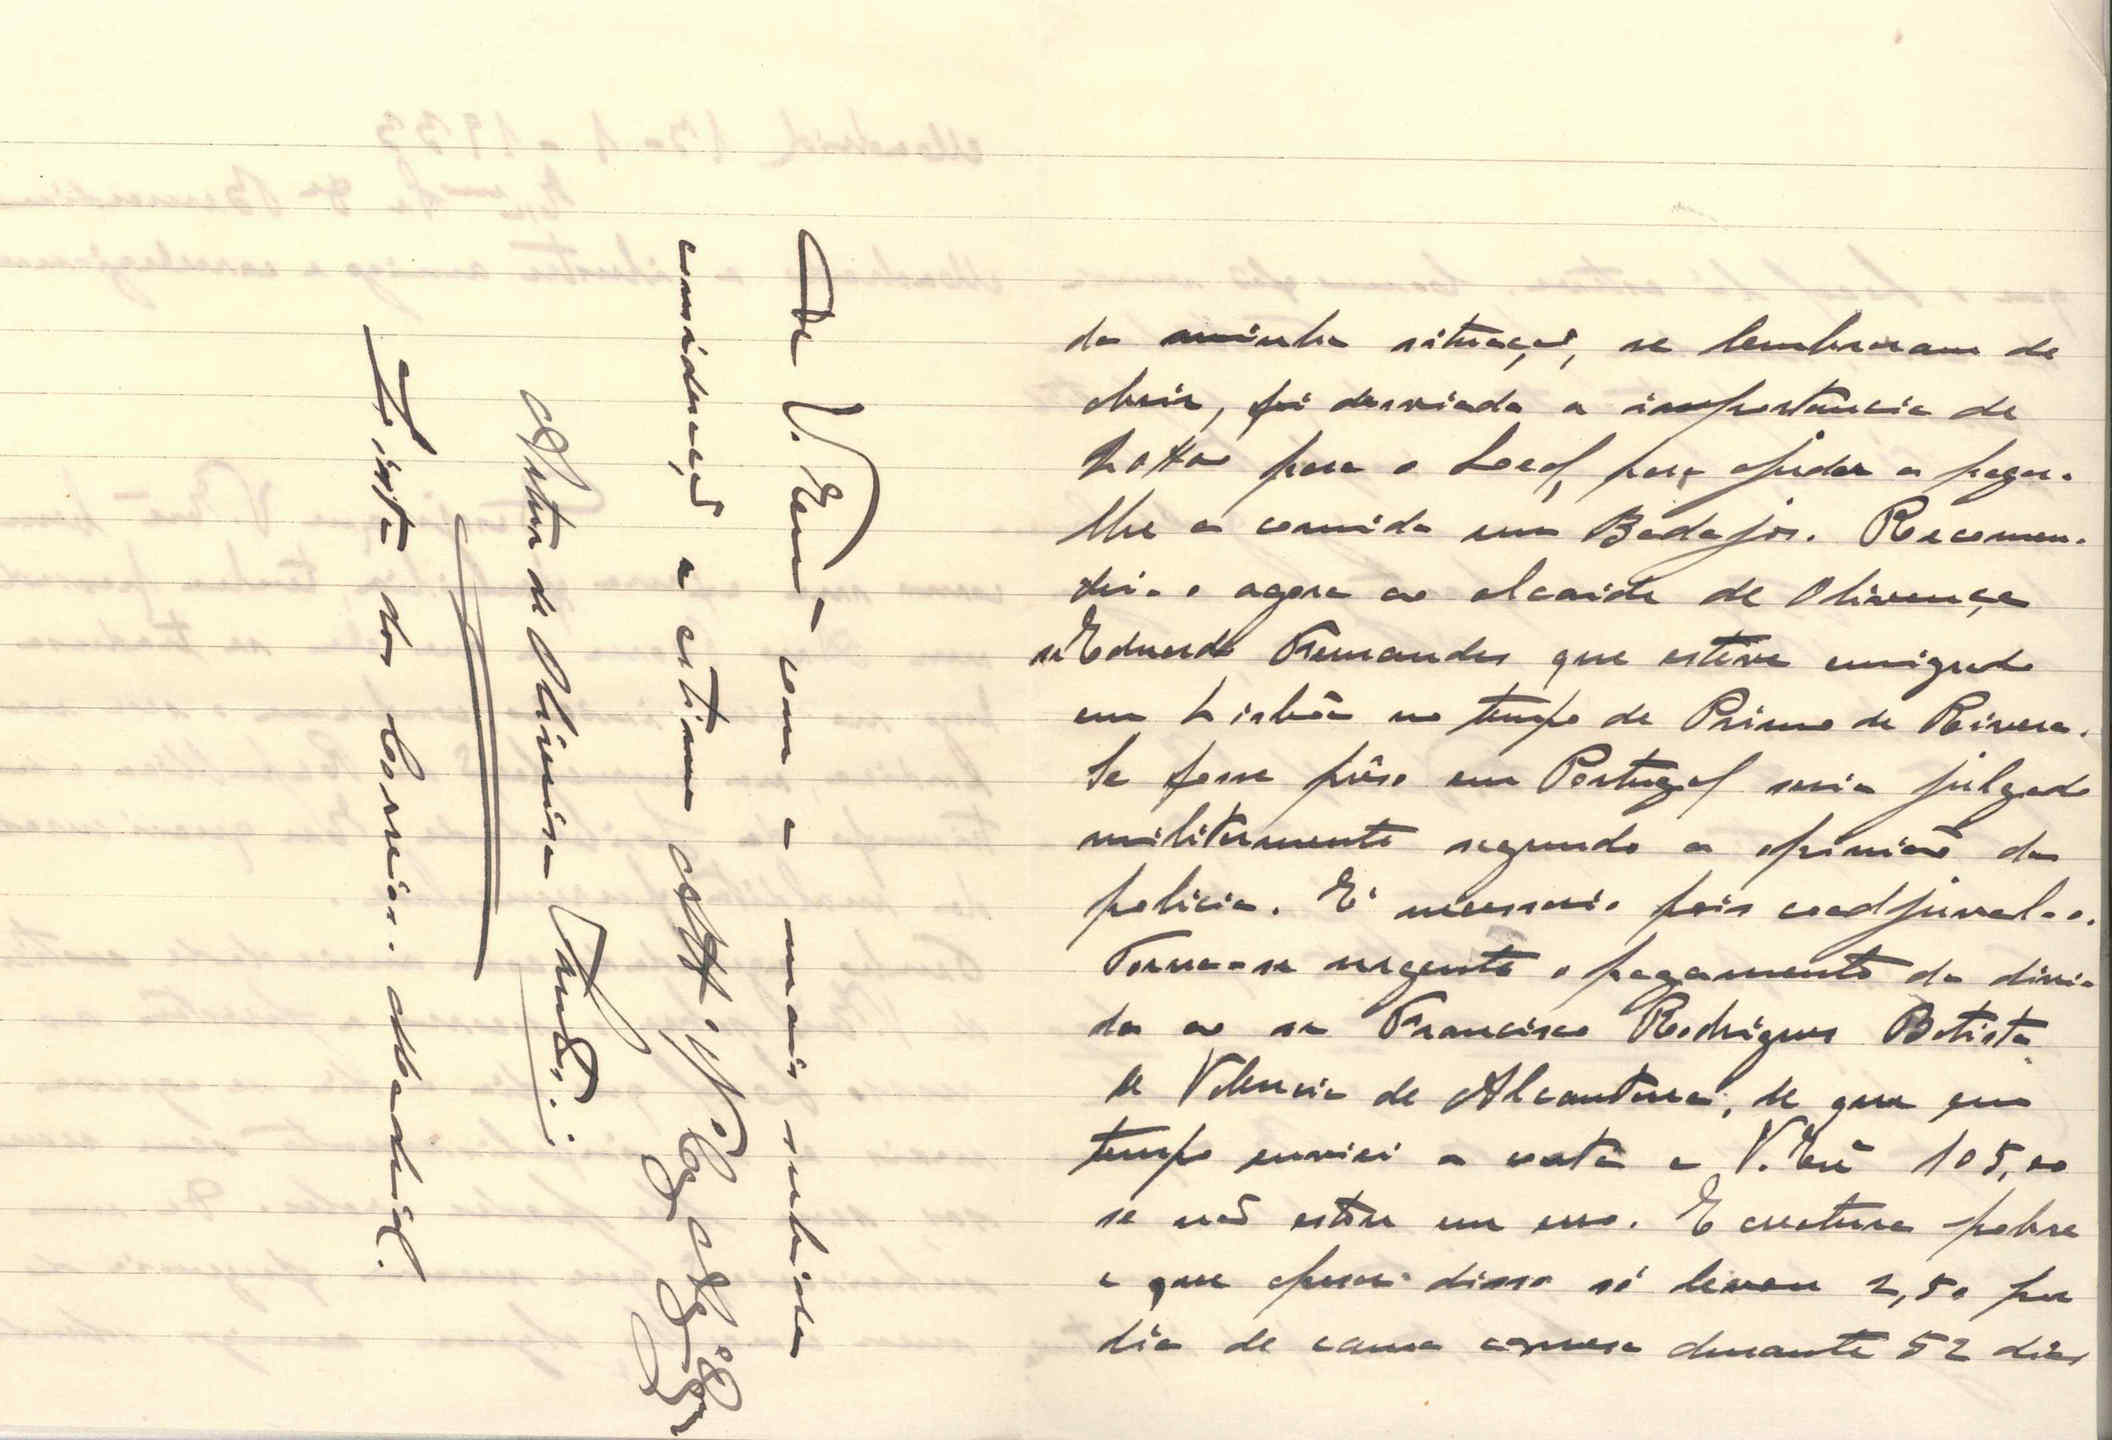 da minha situação, se lembraram de
abrir, foi desviada a importancia de
para o Leal, para ajudar a pagar-
lhe a comida em Badajos. Recomen-
dei-o agora ao alcaide de Olivença
sr Eduardo Fernandes que esteve emigrado
em Lisbôa no tempo de Primo de Rivera.
Se fosse prêso em Portugal seria julgado
militarmente segundo a opinião da
policia. E' necessario pois coadjuval-o.
Torna-se urgente o pagamento da divi-
da ao sr Francisco Rodrigues Batista
de Valencia de Alcantara, de que em
tempo enviei a conta a V. Exª 105,00
se não estou em erro. E creatura pobre
e que apesar disso só levou 2,50 por
dia de cama e mesa durante 52 dias
De V. Exª com a mais subida
consideração e estima Attº Vºr
Artur de Oliveira Santos
Lista dos Correios. Madrid.